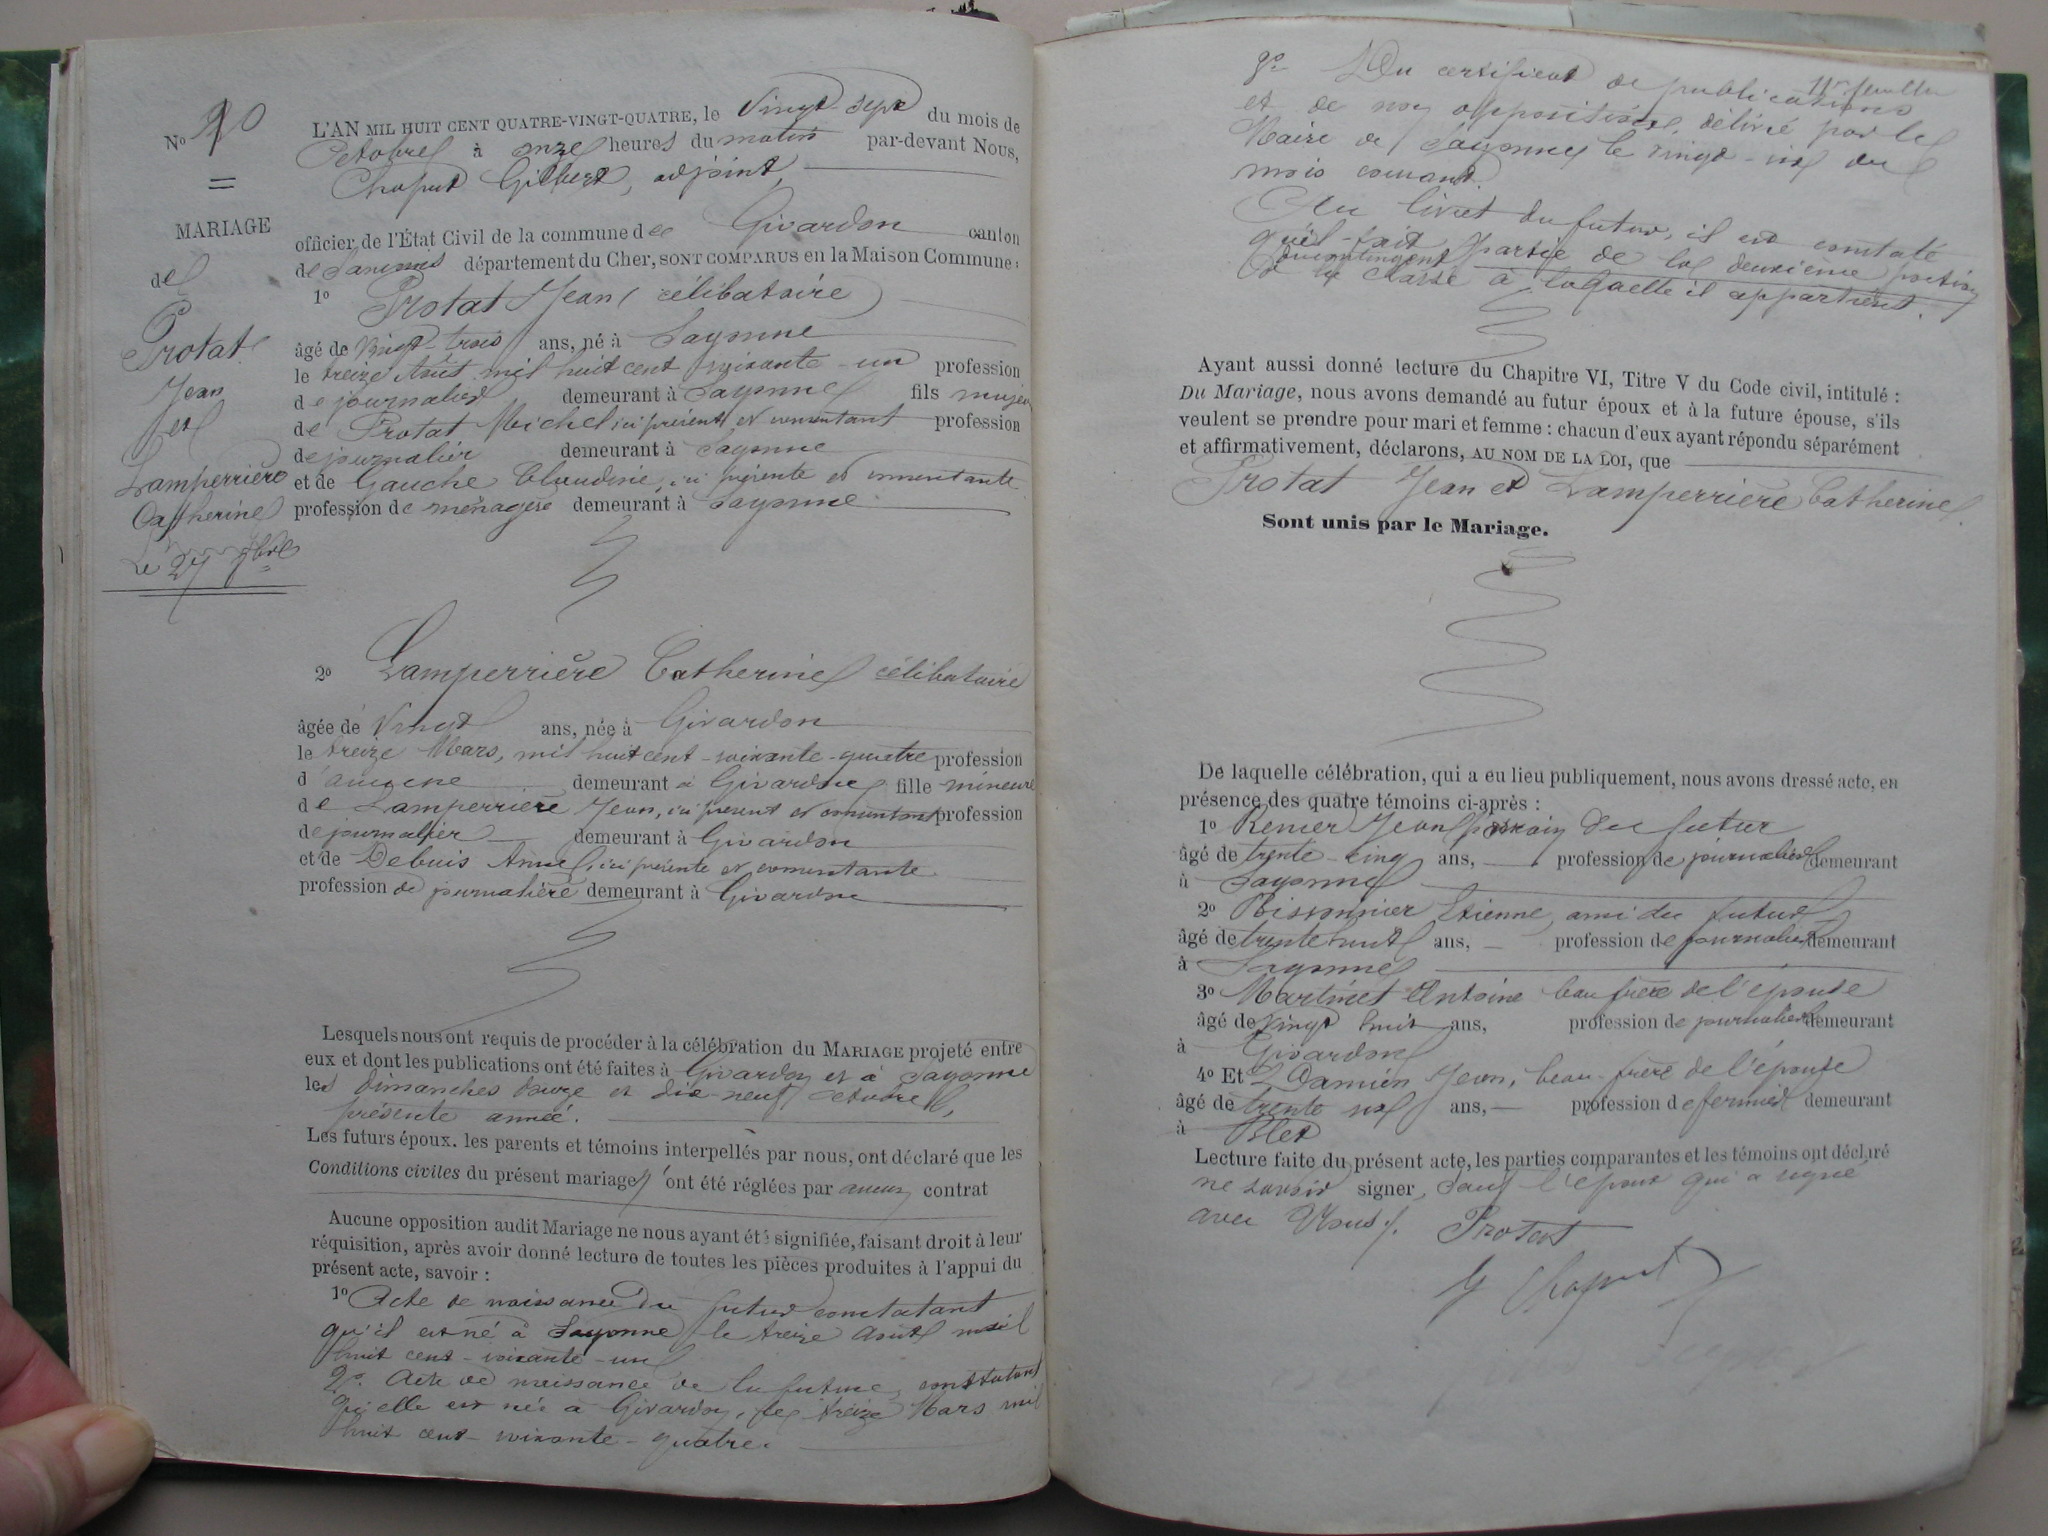 No 20
=
MARIAGE
de
Protat
Jean
et
Lamperrière
Catherine
Le 27 8bre
L'AN MIL HUIT CENT QUATRE-VINGT-QUATRE, le Vingt-sept du mois de
Octobre à onze heures du matin par-devant Nous,
Chaput Gilbert, adjoint,
officier de l'État Civil de la commune de Givardon canton
de Sancoins département du Cher, SONT COMPARUS en la Maison Commune :
1o Protat Jean (célibataire)
âgé de Vingt-trois ans, né à Sagonne
le treize Août mil huit cent soixante-un profession
de journalier demeurant à Sagonne fils majeur
de Protat Michel ici présent et consentant profession
de journalier demeurant à Sagonne
et de Gauche Claudine, ici présente et consentante
profession de ménagère demeurant à Sagonne
2o Lamperrière Catherine célibataire
âgée de Vingt ans, née à Givardon
le treize Mars, mil huit cent-soixante-quatre profession
d'aucune demeurant à Givardon fille mineure
de Lamperrière Jean, ici présent et consentant profession
de journalier demeurant à Givardon
et de Debuis Anne, ici présente et consentante
profession de journalière demeurant à Givardon
Lesquels nous ont requis de procéder à la célébration du MARIAGE projeté entre
eux et dont les publications ont été faites à Givardon et à Sagonne
les dimanches douze et dix-neuf octobre
présente année.
Les futurs époux. les parents et témoins interpellés par nous, ont déclaré que les
Conditions civiles du présent mariage n'ont été réglées par aucun contrat
Aucune opposition audit Mariage ne nous ayant été signifiée, faisant droit à leur
réquisition, après avoir donné lecture de toutes les pièces produites à l'appui du
présent acte, savoir :
1o Acte de naissance du futur constatant
qu'il est né à Sagonne le treize Août mil
huit cent-soixante-un
2o. Acte de naissance de la future, constatant
qu'elle est née à Givardon, le treize Mars mil
huit cent-soixante-quatre.
11e feuillet
3o Du certificat de publications
et de non opposition, délivré par le
Maire de Sagonne le vingt-six du
mois courant.
Au livret du futur, il est constaté
qu'il fait partie de la deuxième portion
du contingent de la classe à laquelle il appartient.
Ayant aussi donné lecture du Chapitre VI, Titre V du Code civil, intitulé :
Du Mariage, nous avons demandé au futur époux et à la future épouse, s'ils
veulent se prendre pour mari et femme : chacun d'eux ayant répondu séparément
et affirmativement, déclarons, AU NOM DE LA LOI, que
Protat Jean et Lamperrière Catherine
Sont unis par le Mariage.
De laquelle célébration, qui a eu lieu publiquement, nous avons dressé acte, en
présence des quatre témoins ci-après :
1o Renier Jean parrain du futur
âgé de trente-cinq ans, profession de journalier demeurant
à Sagonne
2o Etienne, ami du futur
âgé de trente huit ans, profession de journalier demeurant
à Sagonne
3o Martinet Antoine beau frère de l'épouse
âgé de vingt huit ans, profession de journalier demeurant
à Givardon
4o Et Damien Jean, beau-frère de l'épouse
âgé de trente six ans, profession de fermier demeurant
à Blet
Lecture faite du présent acte, les parties comparantes et les témoins ont déclaré
ne savoir signer, sauf l'époux qui a signé
avec Nous. Protat
G Chaput